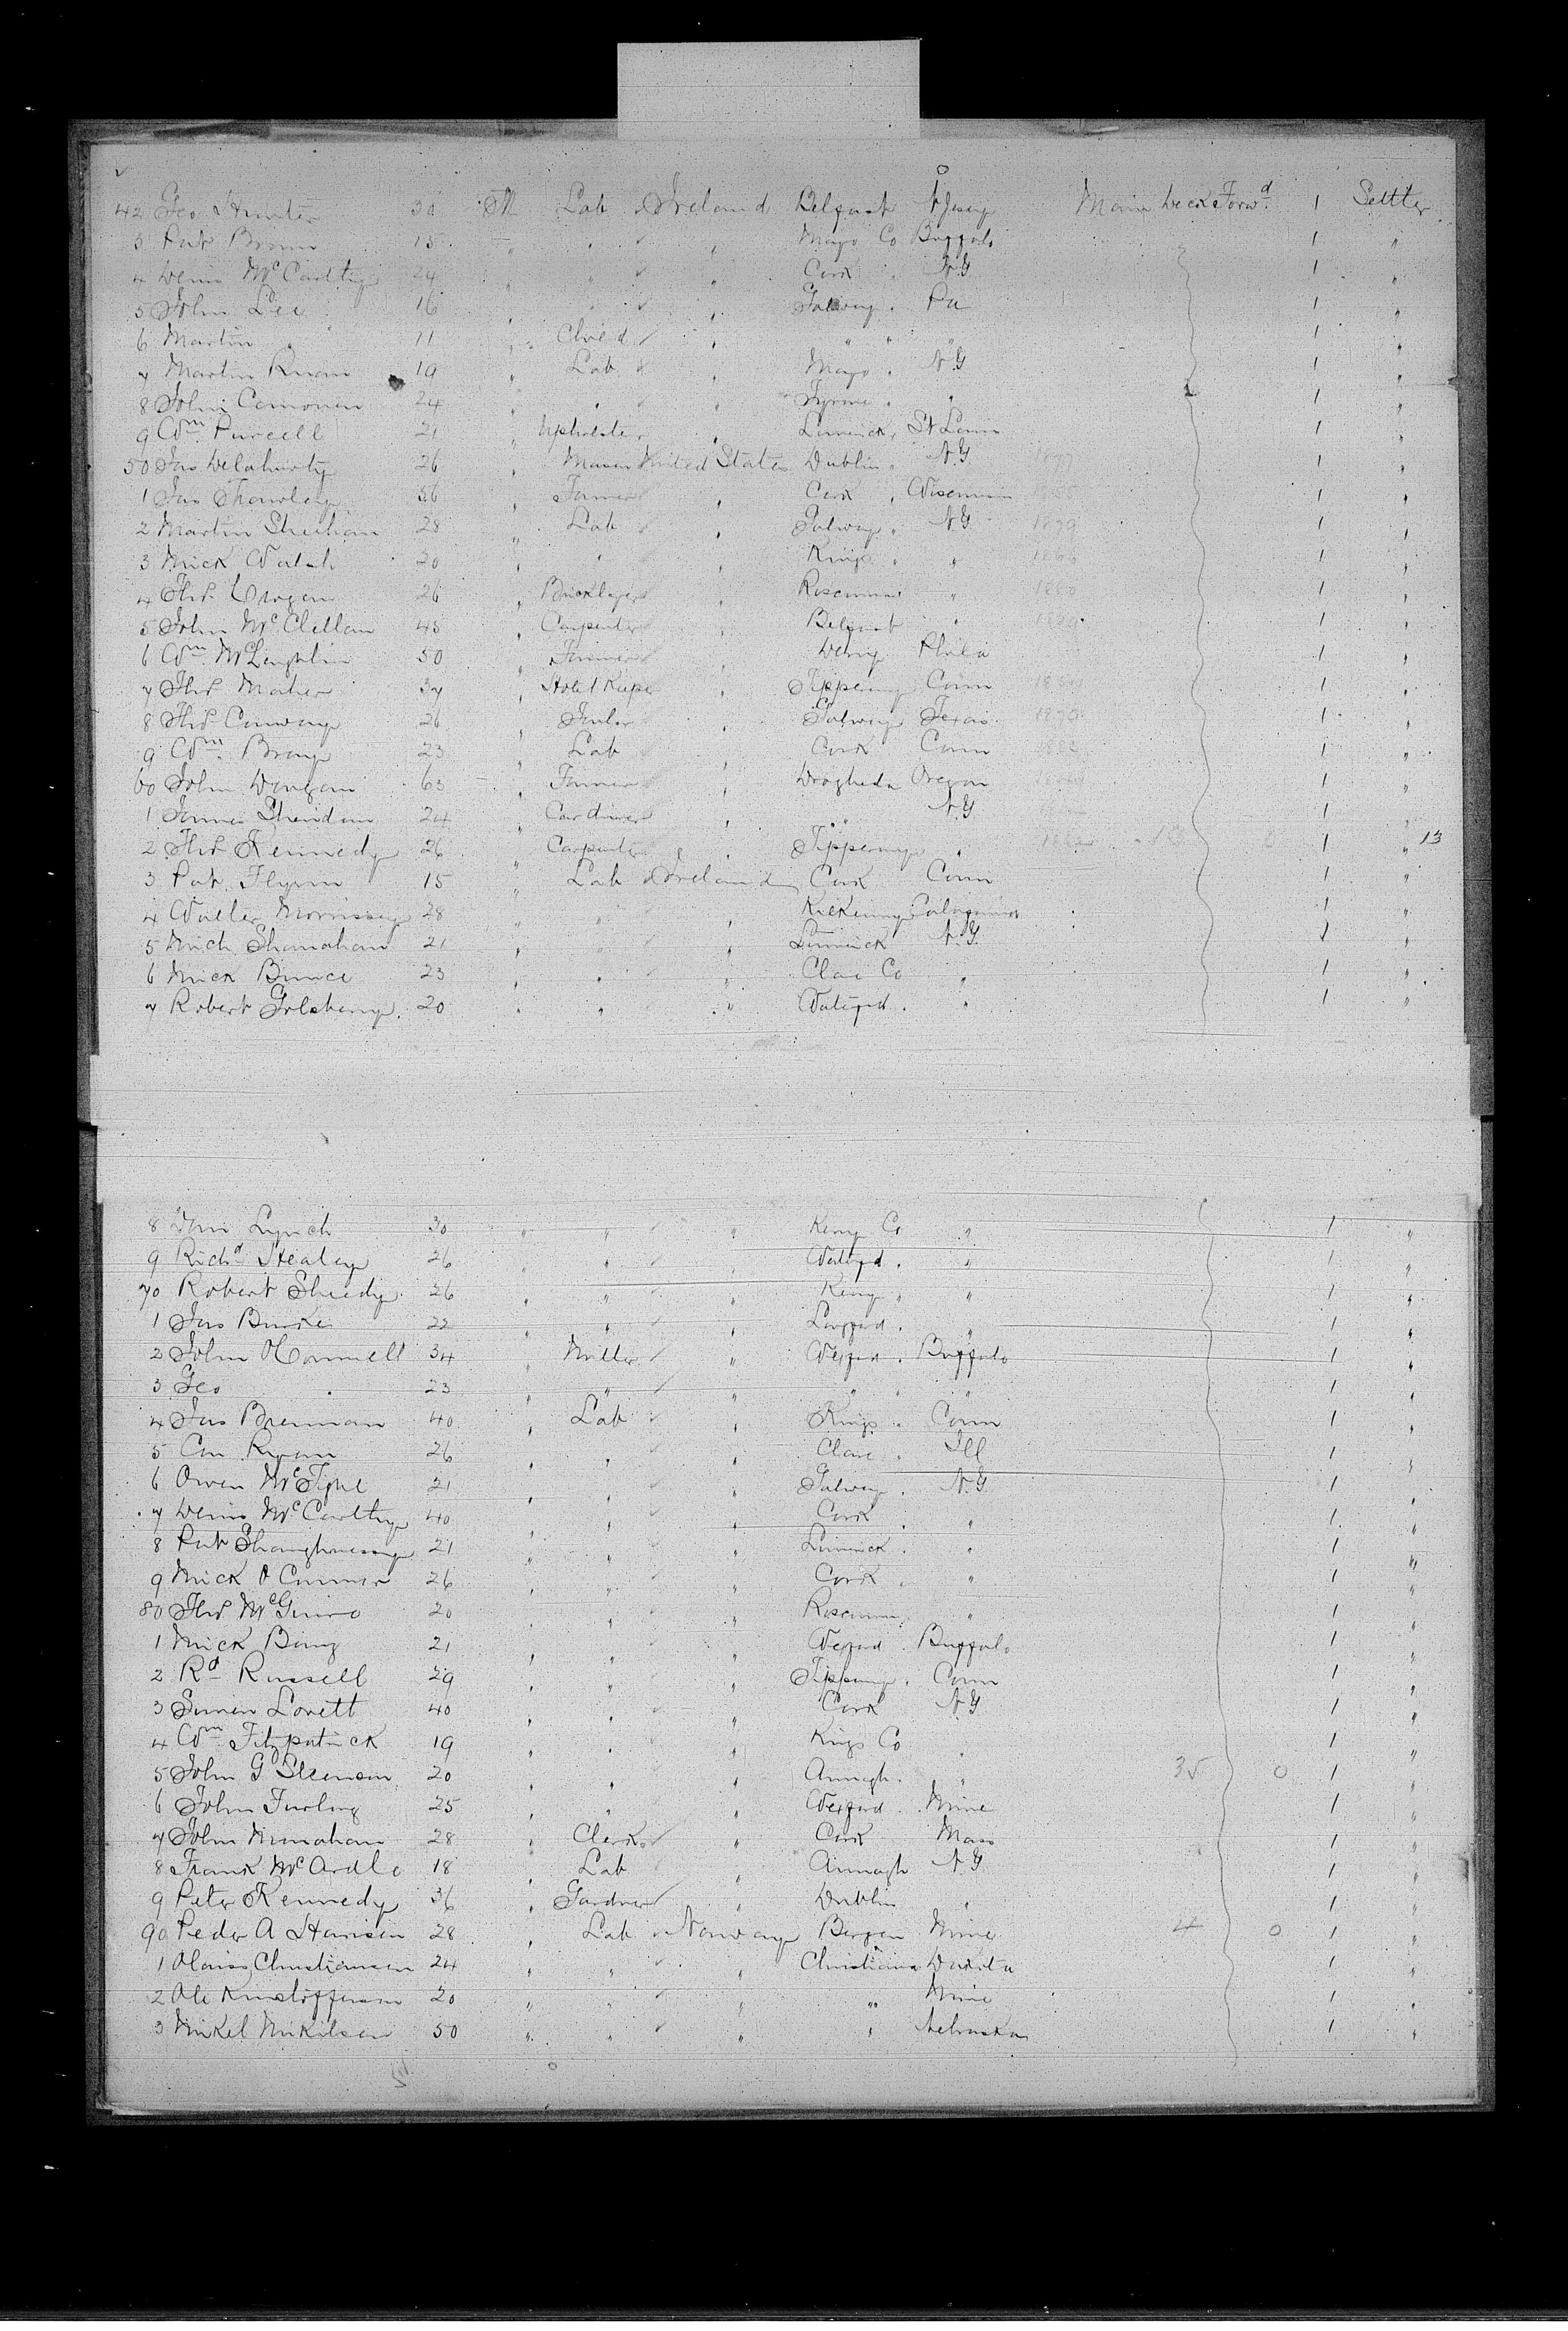 42 Geo Hunter 30 M Lab Ireland Belfast N Jersey Main Deck Forwd 1 Settler
3 Pat Brown 15 " " " Mayo Co Buffalo 1 "
4 Denis McCarthy 24 " " " Cork " N.Y 1 "
5 John Lee 16 " " " Galway " Pa 1 "
6 Martin " 11 " Child " " " " 1 "
7 Martin Ruan 19 " Lab " Mayo " N.Y 1 "
8 John 24 " " " Tyrone " " 1 "
9 Wm Purcell 21 " Upholster " Limerick " St Louis 1 "
50 Jas Delahunty 26 " Mason United States Dublin " N.Y 1 "
1 Jas 36 " Farmer " Cork " Wisconsin 1 "
2 Martin Sheehan 28 " Lab " Galway " N.Y 1879 1 "
3 Mick Walsh 20 " " " Kings " " 1 "
4 Thos Grogan 26 " Bricklayer " Roscommon " 1880 1 "
5 John McClellan 45 " Carpenter " Belfast " 1 "
6 Wm McLoughlin 50 " Farmer " Derry Phila 1 "
7 Thos Maher 37 " Hotel Keeper " Tipperary Conn 1 "
8 Thos Conway 26 " " Galway Texas 1879 1 "
9 Wm Bray 23 " Lab " Cork Conn 1 "
60 John 63 " Farmer " Drogheda Oregon 1 "
1 James Sheridan 24 " Car driver " " " N.Y 1 "
2 Thos Kennedy 26 " Carpenter " Tipperary " 1 " 13
3 Pat Flynn 15 " Lab Ireland Cork Conn 1 "
4 Walter Morrissey 28 " " " Kilkenny California 1 "
5 Mich Shanahan 21 " " " Limerick N.Y. 1 "
6 Mick Bunce 23 " " " Clare Co " 1 "
7 Robert 20 " " " Waterfd " " 1 "
8 Lynch 30 " " " Kerry Co " 1 "
9 Richd Healey 26 " " " Waterfd " " 1 "
70 Robert Sheedy 26 " " " Kerry " " 1 "
1 Jas Burke 22 " " " Longford " " 1 "
2 John OConnell 34 " Miller " Wexford " Buffalo 1 "
3 Geo " 23 " " " " " " 1 "
4 Jas Brennan 40 " Lab " Kings " Conn 1 "
5 Con Ryan 26 " " " Clare " Ill 1 "
6 Owen McTighe 21 " " " Galway " N.Y 1 "
7 Denis McCarthy 40 " " " Cork " " 1 "
8 Pat Shaughnessy 21 " " " Limerick " " 1 "
9 Mick O Connor 26 " " " Cork " " 1 "
80 Thos 20 " " " Roscommon " 1 "
1 Mick 21 " " " Wexford " Buffalo 1 "
2 Rd Russell 29 " " " Tipperary " Conn 1 "
3 Simon Lovett 40 " " " Cork N.Y 1 "
4 Wm Fitzpatrick 19 " " " Kings Co 1 "
5 John G Steenson 20 " " " Armagh " " 35 0 1 "
6 John Furlong 25 " " " Wexford " Minne 1 "
7 John Monahan 28 " Clerk " Cork Mass 1 "
8 Frank McArdle 18 " Lab " Armagh N.Y 1 "
9 Peter Kennedy 36 " Gardner " Dublin " 1 "
90 Peder A Hansen 28 " Lab Norway Bergen Minne 4 0 1 "
1 Christiansen 24 " " " Christiania Dakota 1 "
2 Ole Kristofferson 20 " " " " Minne 1 "
3 Mikel Mikilsen 50 " " " " Nebraska 1 "